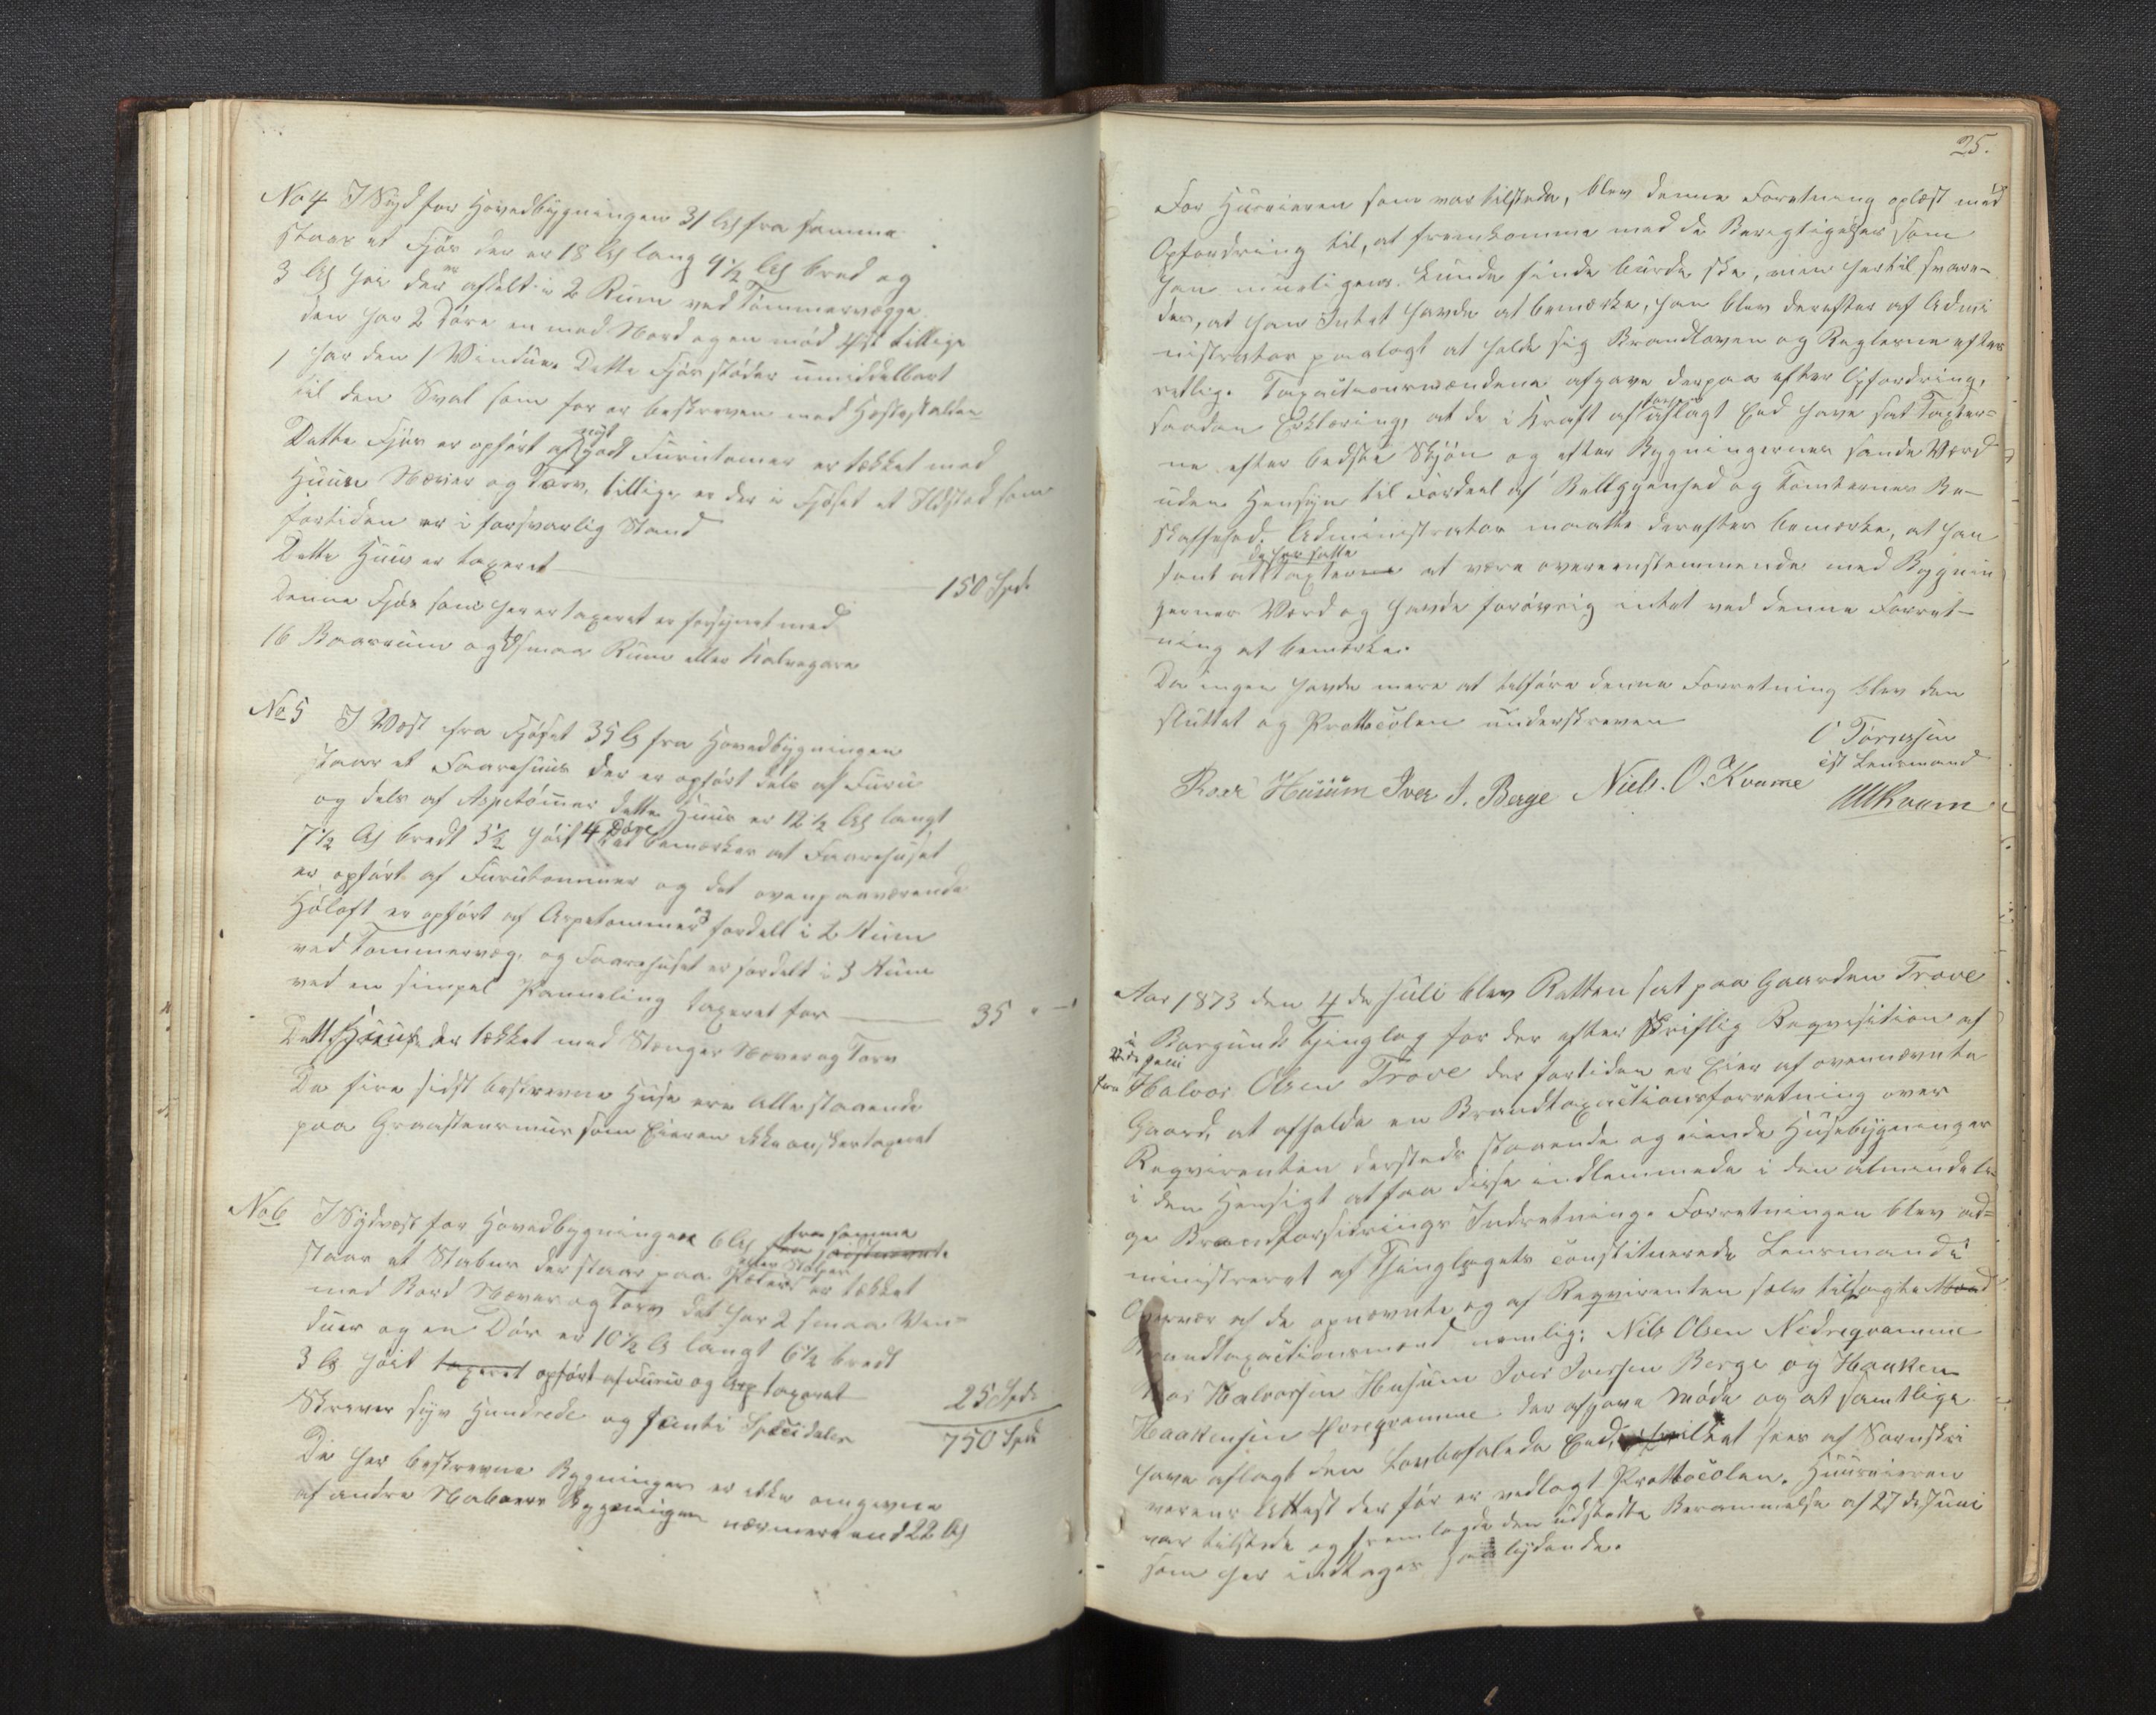 No 4 I Syd for Hovedbygningen 31 Al fra samme
staar et Fjøs der er 18 Al lang 9½ Al bred og
3 Al høi der er afdelt i 2 Rum ved Tømmervægge
den har 2 Døre en mod Nord og en mod Øst tillige
har den 1 Vindue. Dette Fjøs støder umiddelbart
til den Sval som før er beskreven med Hestestalden
Dette Fjøs er opført af nyt godt Furutømer er tækket med
Huun Næver og Torv, tillige er der i Fjøset et Ildsted som
fortiden er i forsvarlig Stand
Dette Huus er taxeret — 150 Spd.
Denne Fjøs som her er taxeret er forsynet med
16 Baasrum og to smaa Rum eller Kalvegare
No 5 I Vest fra Fjøset 35 Al fra Hovedbygningen
staar et Faarehuus der er opført dels af Furu
og dels af Aspetømer dette Huus er 12½ Al langt
7½ Al bredt 5½ høit 4 Døre Det bemærkes at Faarehuset
er opført af Furutømmer og det ovenpaaværende
Høloft er opført af Aspetømmer og fordelt i 2 Rum
ved Tømmervæg, og Faarehuset er fordelt i 3 Rum
ved en simpel Panneling taxeret for — 35 " —
Dett Huus er tækket med Stænger Næver og Torv
De fire sidst beskrevne Huse ere Alle staaende
paa Graastensmur som Eieren ikke ønsker taxeret
No 6 I Sydvest for Hovedbygningen 6 Al fra samme
staar et Stabur der staar paa eller Stolper er tækket
med Bord Næver og Torv det har 2 smaa Vin-
duer og en Dør er 10½ Al langt 6½ bredt
3 Al høit taxeret opført af Furu og Asp taxeret 25 Spd
Skriver syv Hundrede og femti Speidaler 750 Spd
De her beskrevne Bygninger er ikke omgivne
af andre Naboers Bygninger nærmere end 22 Al
25.
For Huseieren som var tilstede, blev denne Foretning oplæst med
Opfordring til, at fremkomme med de Berigtigelser som
han mueligens kunde finde burde ske, men hertil svare-
des, at han Intet havde at bemærke, han blev derefter af Admi
nistrator paalagt at holde sig Brandloven og Reglerne efter
rettlig. Taxactionsmændene afgave derpaa efter Opfordring,
saadan Erklæring, at de i Kraft af aflagt Eed have sat Taxter-
ne efter bedste Skjøn og efter Bygningernes sande Værd
uden Hensyn til Fordeel af Beliggenhed og Tomternes Be-
skaffehed. Administrator maatte derefter bemærke, at han
fant at de her satte Taxter at være overeensstemmende med Bygnin
gernes Værd og havde forøvrig intet ved denne Forret-
ning at bemærke.
Da ingen havde mere at tilføre denne Forretning blev den
sluttet og Prottocolen underskreven
O Tørrissen
cst Lensmand
Roar Husum Iver I. Berge Niels. O. Kvame
Aar 1873 den 4 de Juli blev Retten sat paa Gaarden Trove
i Borgunds Tjinglag for der efter Skriftlig Reqvisition af
Halvor Olsen Trove der fortiden er Eier af ovennævnte
Gaard, at afholde en Brandtaxactionsforretning over
Reqvirenten dersteds staaende og eiende Husebygninger
i den Hensigt at faa disse indlemmede i den almindeli
ge Brandforsikrings Indretning. Forretningen blev ad-
ministreret af Thinglagets constituerede Lensmand i
Overvær af de opnævnte og af Reqvirenten selv tilsagte Mænd
Brandtaxactionsmænd nemlig: Nils Olsen Nedreqvamme
Roar Halvorsen Husum Iver Iversen Berge og Haaken
Haakensen Øvreqvamme der afgave Møde og at samtlige
have aflagt den lovbefalede Eed, hvilket sees af Sorenskri
verens Attest der før er vedlagt Prottocolen. Huuseieren
var tilstede og fremlagde den udstedte Berammelse af 27 de Juni
som her indtages saa lydende.